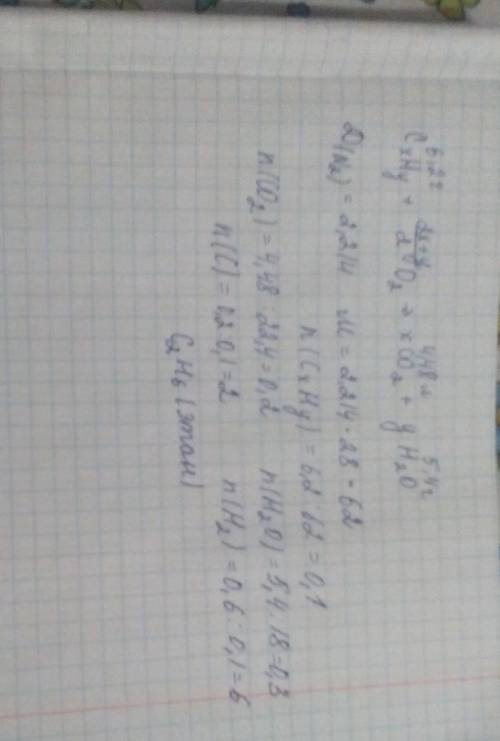 6.2г 4,48л 5.4г
CxHy + (2x+y)/2 O₂ → xCO₂ + yH₂O
D(N₂) = 2,214 M = 2.214 · 28 = 62
n(CxHy) = 6,2 : 62 = 0,1
n(CO₂) = 4,48 : 22,4 = 0,2 n(H₂O) = 5,4 : 18 = 0,3
n(C) = 0,2 : 0,1 = 2 n(H₂) = 0,6 : 0,1 = 6
C₂H₆ (этан)